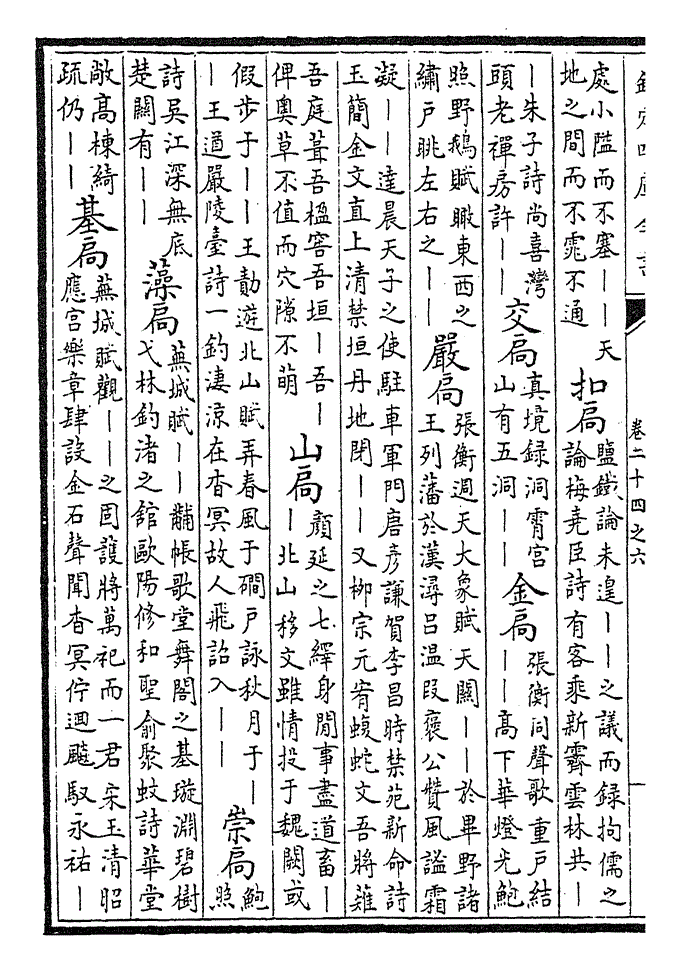 欽定四庫全書
卷二十四之六
處小隘而不塞——天
地之間而不窕不通
扣扃
鹽鐵論未遑——之議而録拘儒之
論梅堯臣詩有客乘新霽雲林共—
—朱子詩尚喜灣
頭老禪房許——
交扃
真境録洞霄宫
山有五洞——
金扃
張衡同聲歌重戶結
——高下華燈光鮑
照野鵝賦瞰東西之
繡戶眺左右之——
嚴扃
張衡週天大象賦天關——於畢野諸
王列藩於漢潯吕温叚褒公贊風謐霜
凝——達晨天子之使駐車軍門唐彦謙賀李昌時禁苑新命詩
玉簡金文直上清禁垣丹地閉——又柳宗元宥蝮蛇文吾將薙
吾庭葺吾楹窖吾垣—吾—
俾奥草不值而穴隙不萌
山扃
顔延之七繹身閒事盡道畜—
—北山移文雖情投于魏闕或
假步于——王勣遊北山賦弄春風于磵戶詠秋月于—
—王遒嚴陵臺詩一釣淒涼在杳冥故人飛詔入——
崇扃
鮑
照
詩吴江深無底
楚闕有——
藻扃
蕪城賦——黼帳歌堂舞閣之基璇淵碧樹
弋林釣渚之館歐陽修和聖俞聚蚊詩華堂
敞高棟綺
疏仍——
基扃
蕪城賦觀——之固護將萬祀而一君宋玉清昭
應宫樂章肆設金石聲聞杳冥佇迴飈馭永祐——